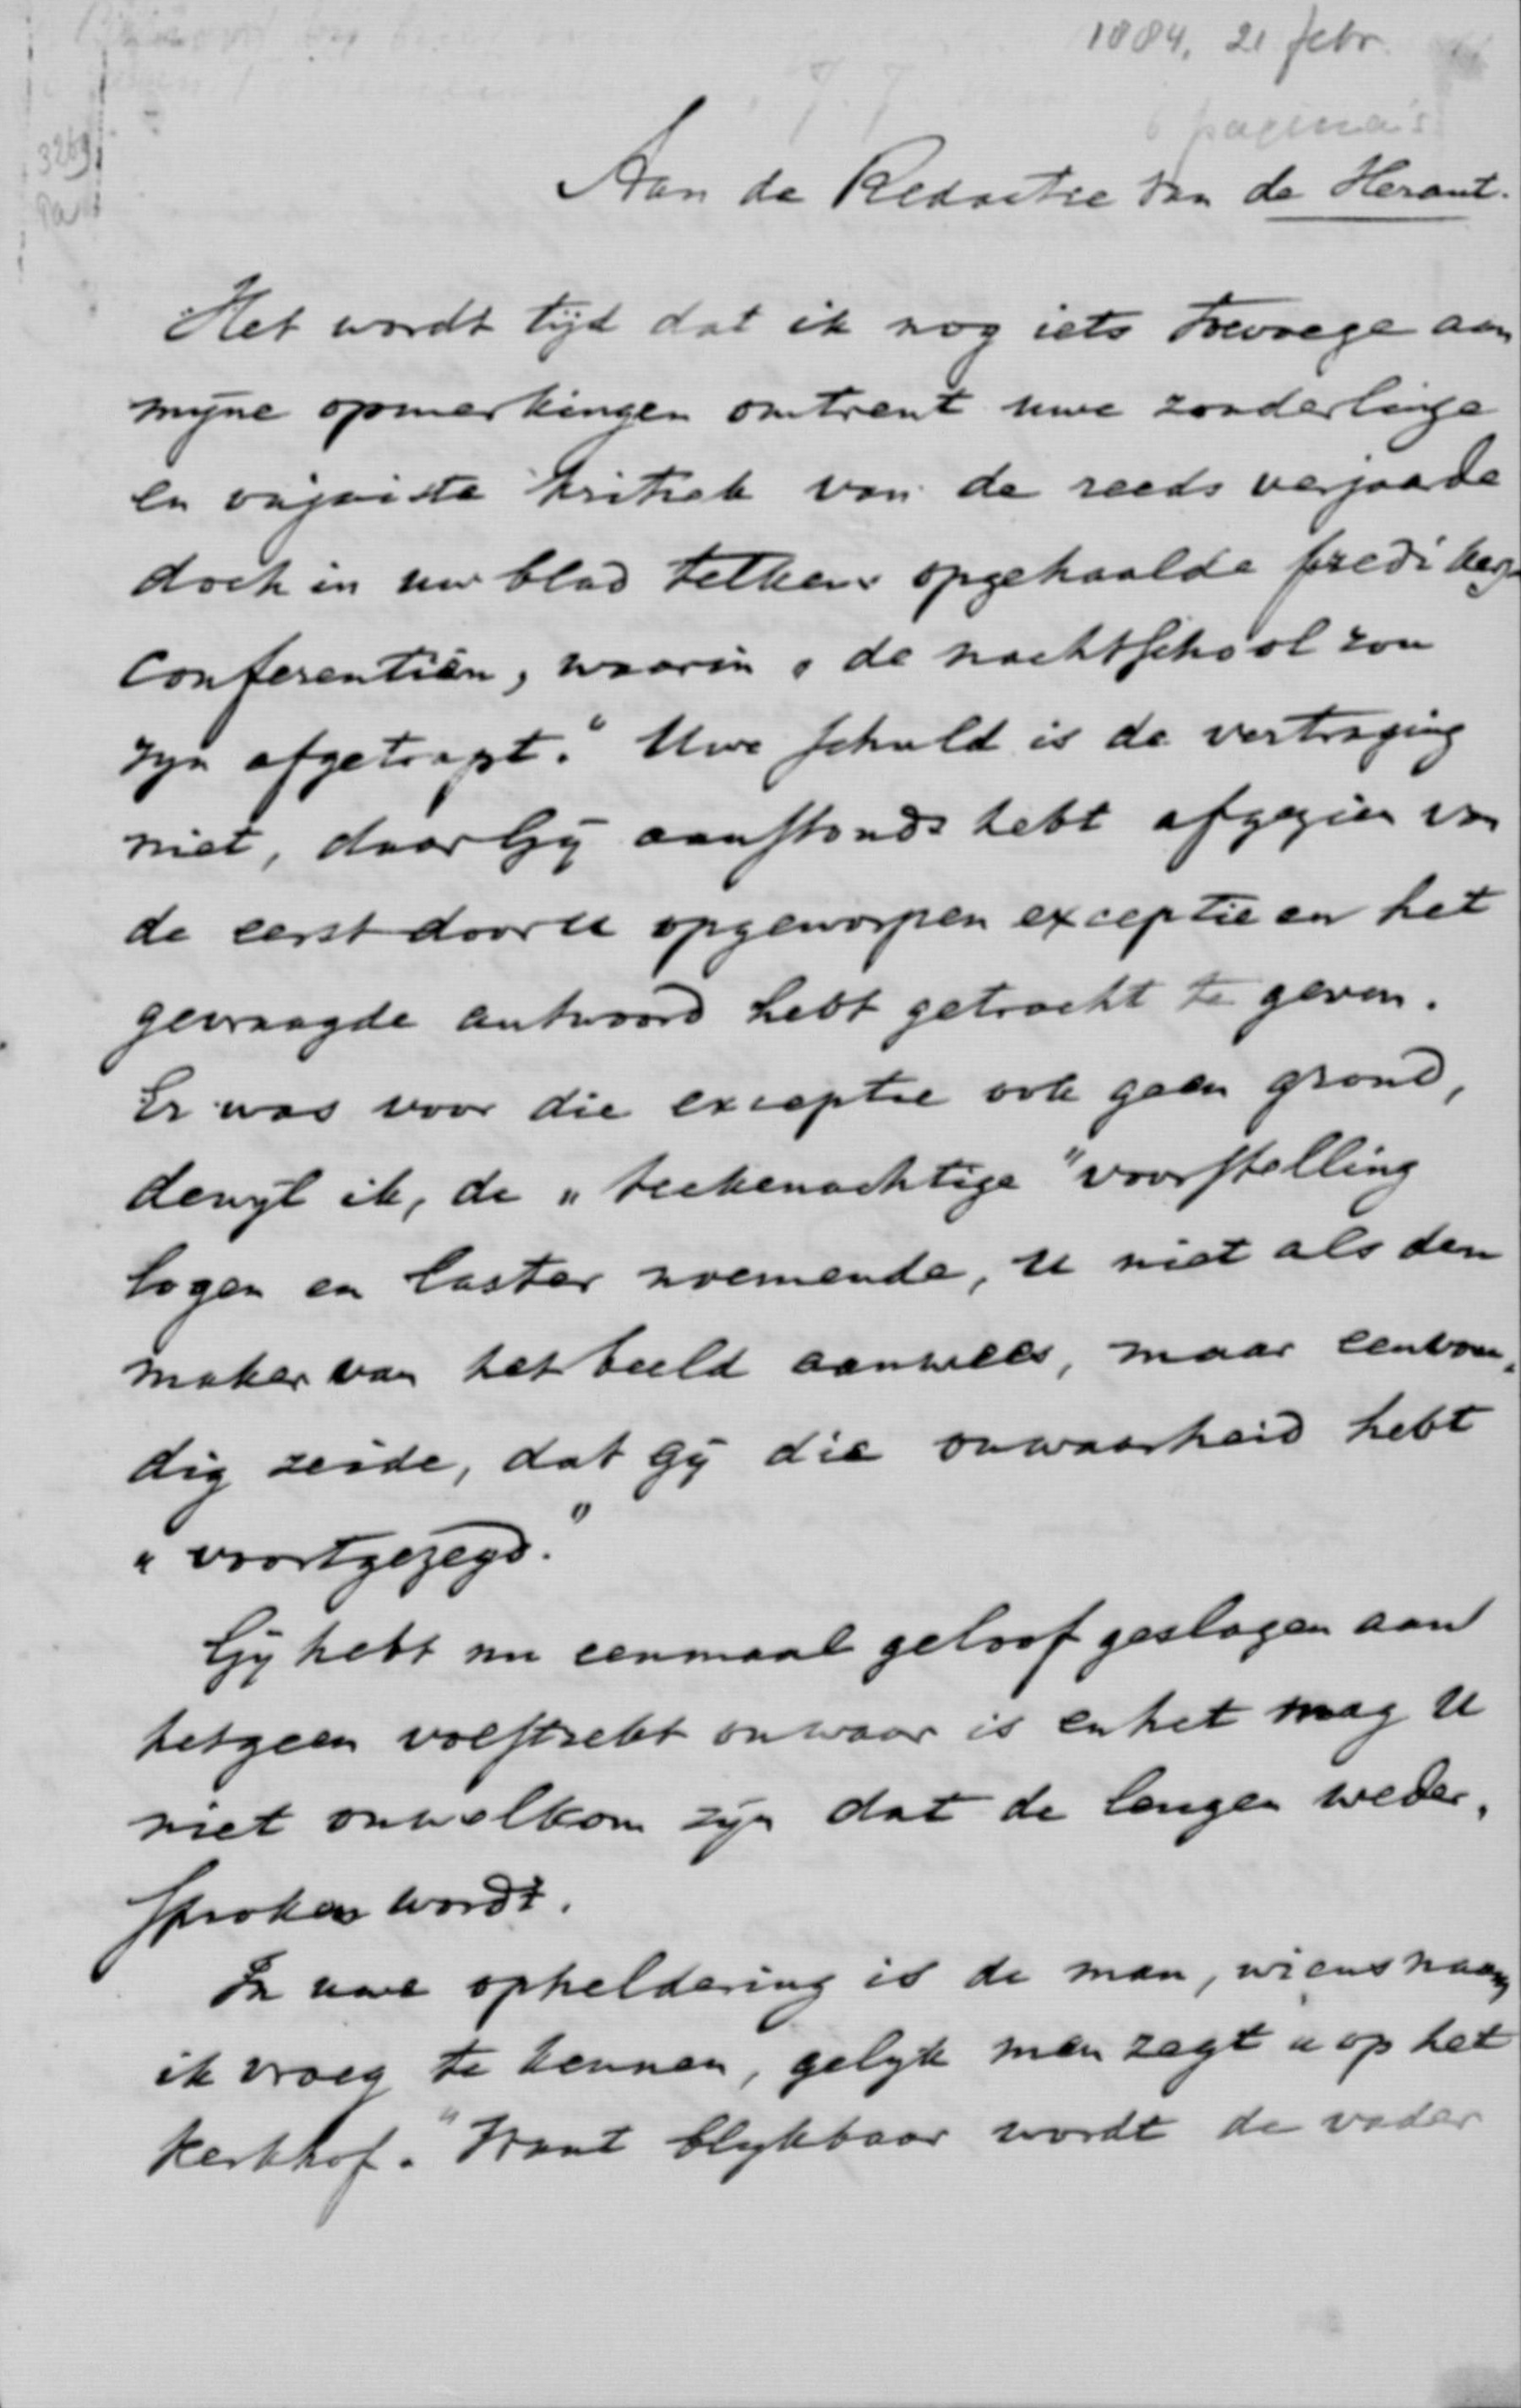 1884, 21 febr.
6 pagina's
3269
Aan de Redactie van de Heraut.
Het wordt tijd dat ik nog iets toevoege aan
mijne opmerkingen omtrent uwe zonderlinge
en onjuiste kritiek van de reeds verjaarde
doch in uw blad telkens opgehaalde prediker-
conferentiën, waarin „de nachtschool zou
zijn afgetrapt." Uwe schuld is de vertraging
niet, daar Gij aanstonds hebt afgezien van
de eerst door U opgeworpen exceptie en het
gevraagde antwoord hebt getracht te geven.
Er was voor die exceptie ook geen grond,
dewijl ik, de „teekenachtige" voorstelling
logen en laster noemende, U niet als den
maker van het beeld aanwees, maar eenvou-
dig zeide, dat gij die onwaarheid hebt
„voortgezegd."
Gij hebt nu eenmaal geloof geslagen aan
hetgeen volstrekt onwaar is en het mag U
niet onwelkom zijn dat de leugen weder-
sproken wordt.
In uwe opheldering is de man, wiens naam
ik vroeg te kennen, gelijk men zegt „op het
kerkhof." Want blijkbaar wordt de vader